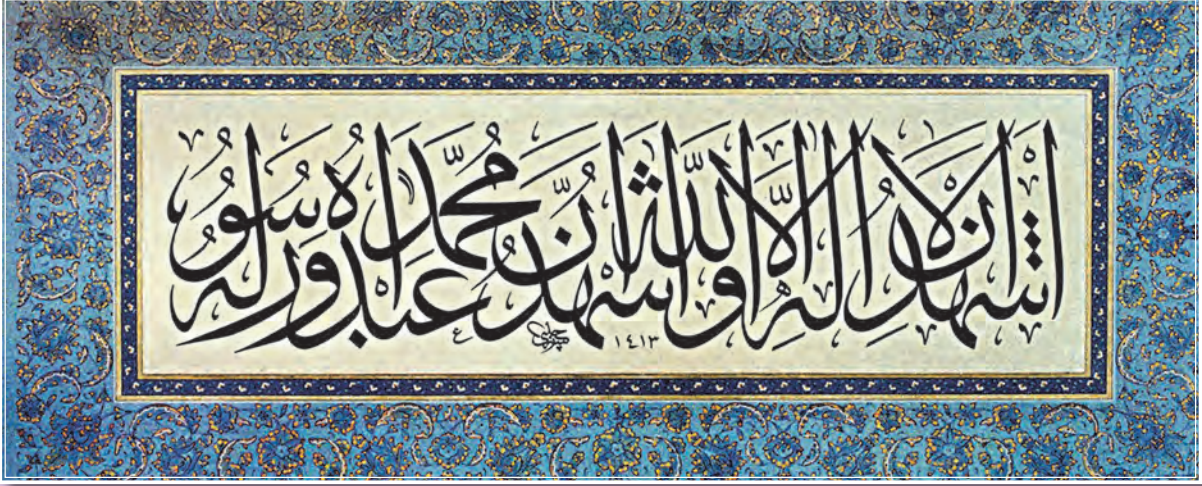 اشهد ان لا اله الا الله واشهد ان محمدا عبده ورسوله
١٤١٣